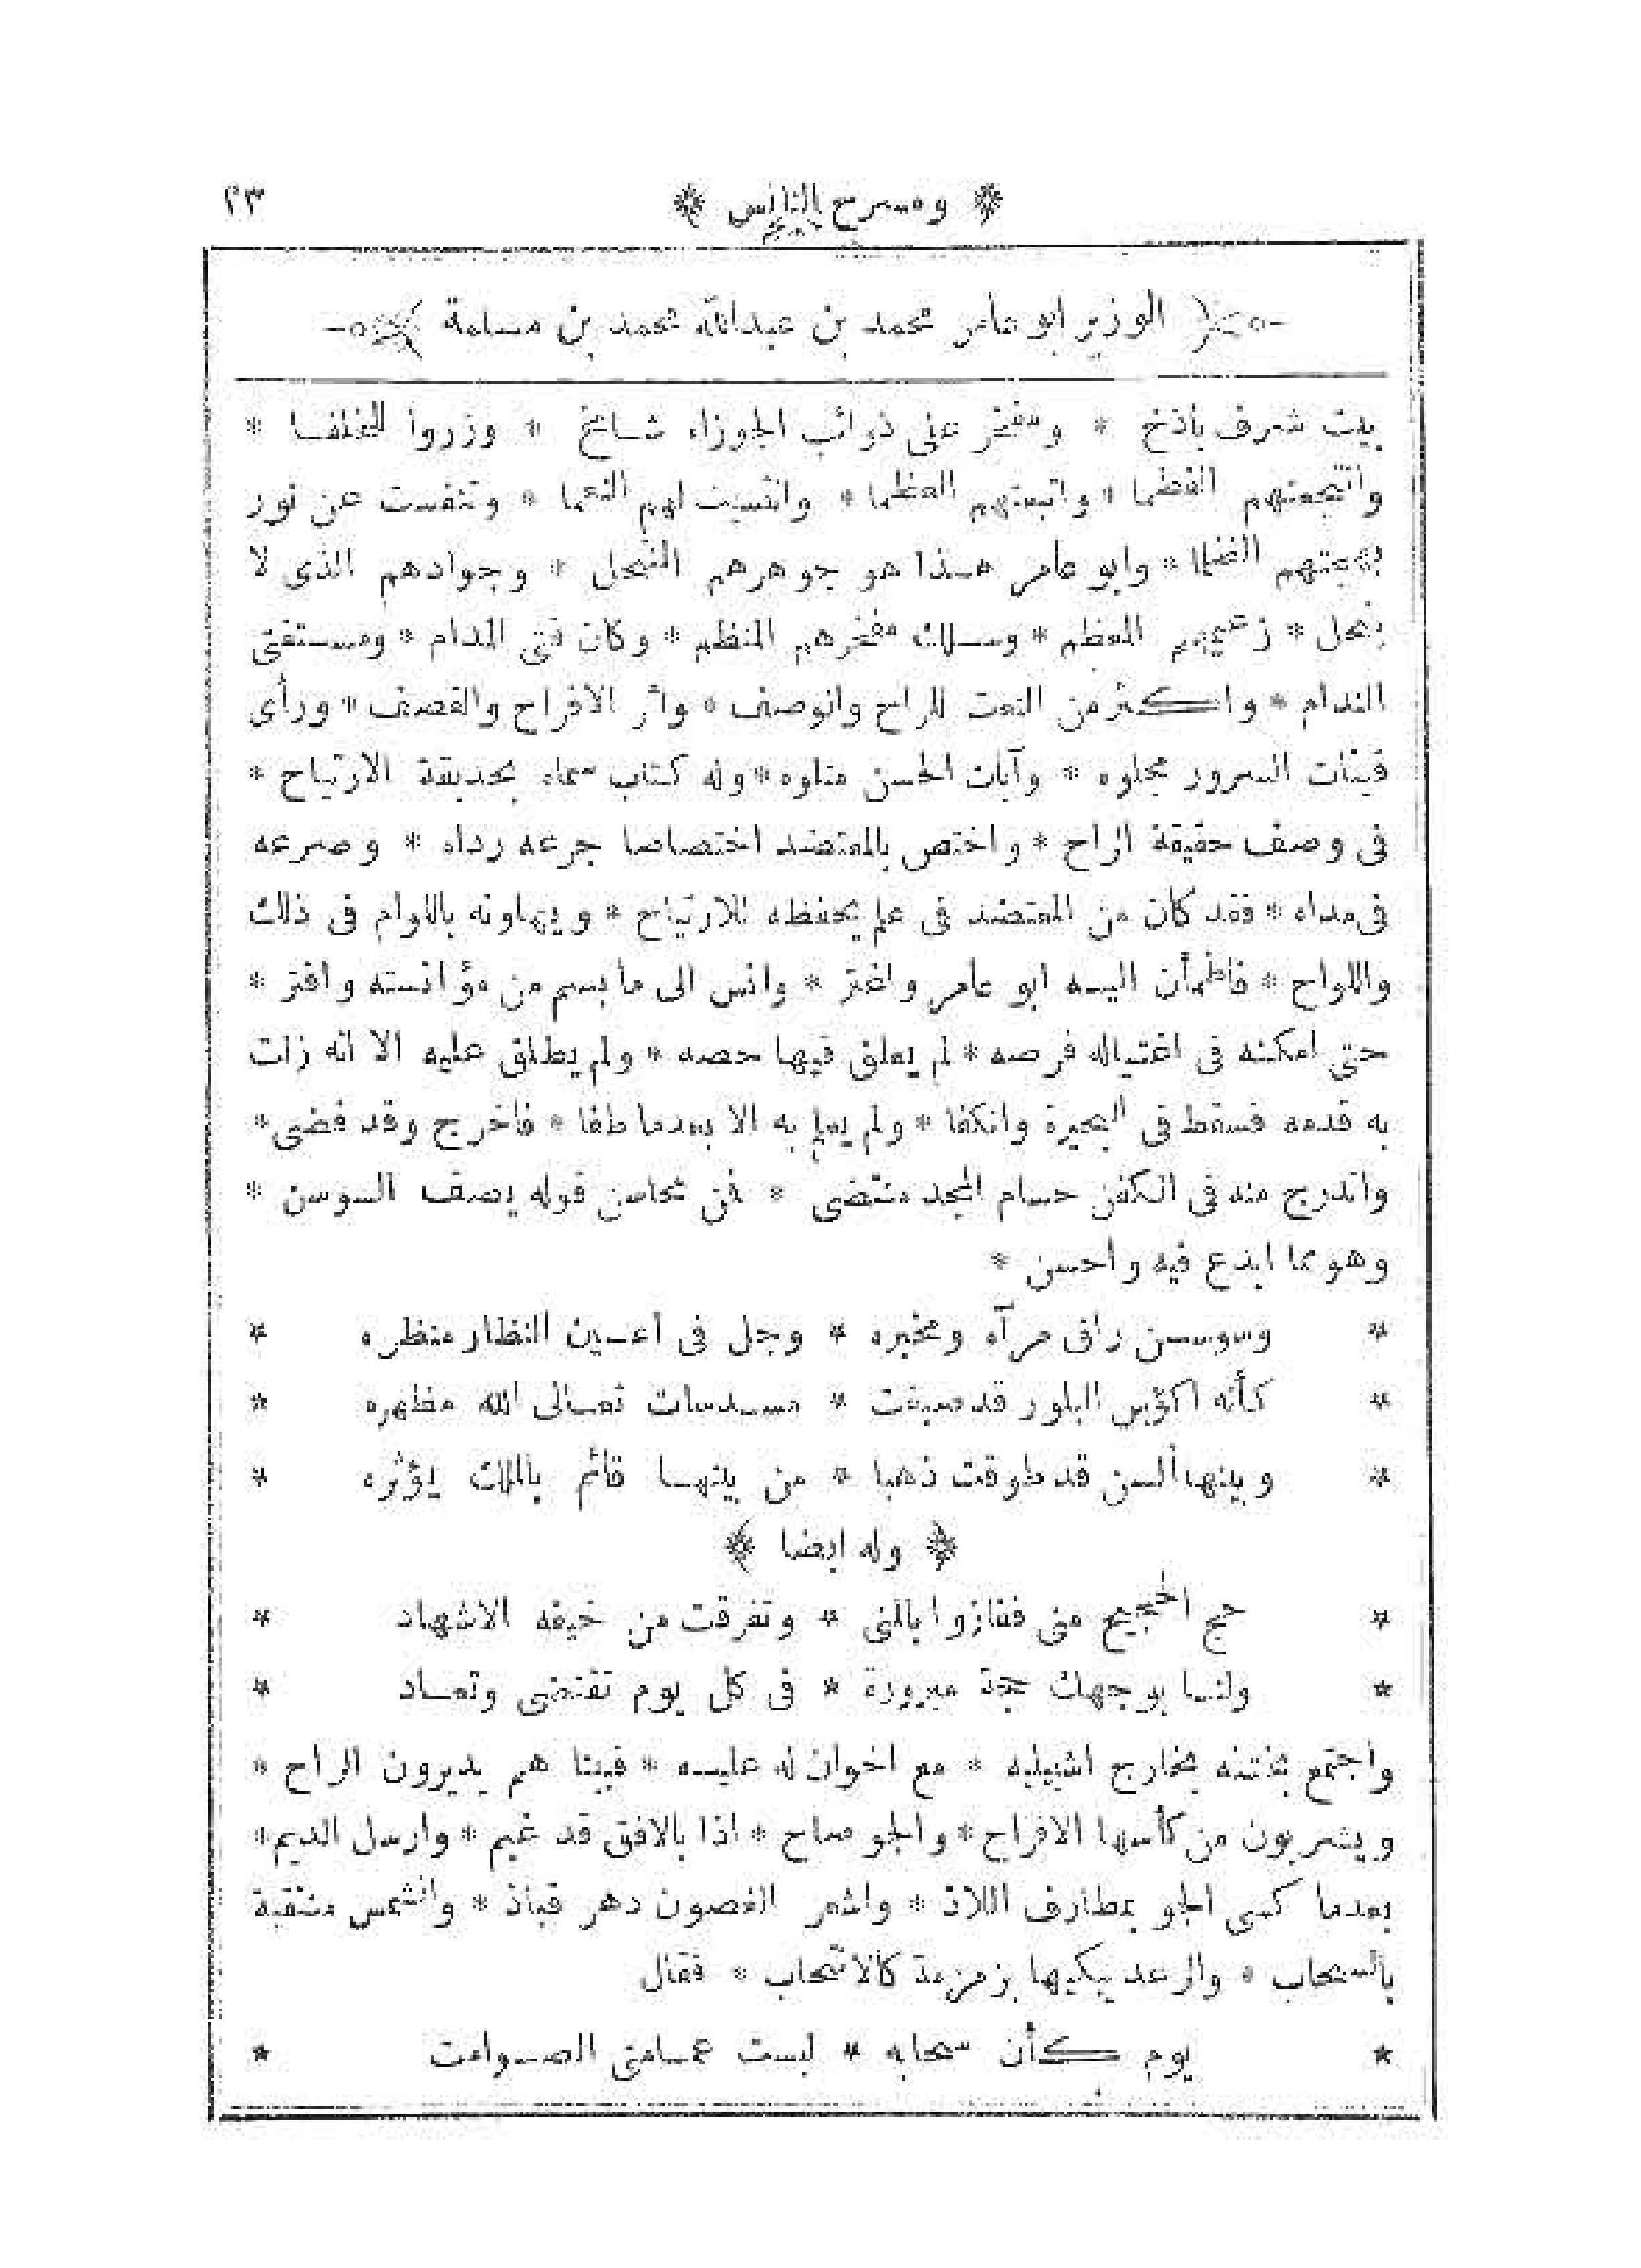 ﴿ ومسرح التانس ﴾ ٢٣
﴿ الوزير ابو عامر محمد بن عبدالله محمد بن مسلمة ﴾
بيت شرف باذخ * ومفخر على ذوائب الجوزاء شامخ * وزروا للخلفا *
وانتجعتهم العظما * واتبعتهم العظما * وانتسبت لهم النعما * وتنفست عن نور
بهجتهم الظلما * وابو عامر هذا هو جوهرهم المنتحل * وجوادهم الذى لا
ينحل * زعيمهم المعظم * وسلك مفخرهم المنظم * وكان فتى المدام * ومستفتى
الندام * واكثر من النعت للراح والوصف * واثر الافراح والقصف * ورأى
قينات السرور مجلوه * وآيات الحسن متلوه * وله كتاب سماه بحديقة الارتياح *
فى وصف حقيقة الراح * واختص بالمعتضد اختصاصا جرعه رداه * وصرعه
فى مداه * فقد كان من المعتضد فى علم يحفظه للارتياح * ويهاونه باللوام فى ذلك
واللواح * فاطمأن اليه ابو عامر واغتر * وانس الى ما بسم من مؤانسته وافتر *
حتى امكنه فى اغتياله فرصه * لم يعلق فيها حصه * ولم يطلق عليه الا انه زلت
به قدمه فسقط فى البحيرة وانكفا * ولم يعلم به الا بعدما طفا * فاخرج وقد قضى *
واندرج منه فى الكفن حسام المجد منتضى * فمن محاسن قوله يصف السوسن *
وهو مما ابدع فيه واحسن *
* وسوسن راق مرآه ومخبره * وجل فى أعين النظار منظره *
* كأنه اكؤس البلور قد صبغت * مسدسات تعالى الله مظهره *
* وبينها ألسن قد طوقت ذهبا * من بينها قائم بالملك يؤثره *
﴿ وله ايضا ﴾
* حج الحجيج منى ففازوا بالمنى * وتفرقت من خيفه الاشهاد *
* ولنا بوجهك حجة مبرورة * فى كل يوم تقتضى وتعاد *
واجتمع بجنته بخارج اشبيليه * مع اخوان له عليه * فبينا هم يديرون الراح *
ويشربون من كأسها الافراح * والجو صاح * اذا بالافق قد غيم * وارسل الديم *
بعدما كسى الجو بمطارف اللاذ * واشعر الغصون دهر قباذ * والشمس منتقبة
بالسحاب * والرعد يبكيها بزمزمة كالانتحاب * فقال
* يوم كأن سحابه * لبست عمامتى الصوامت *